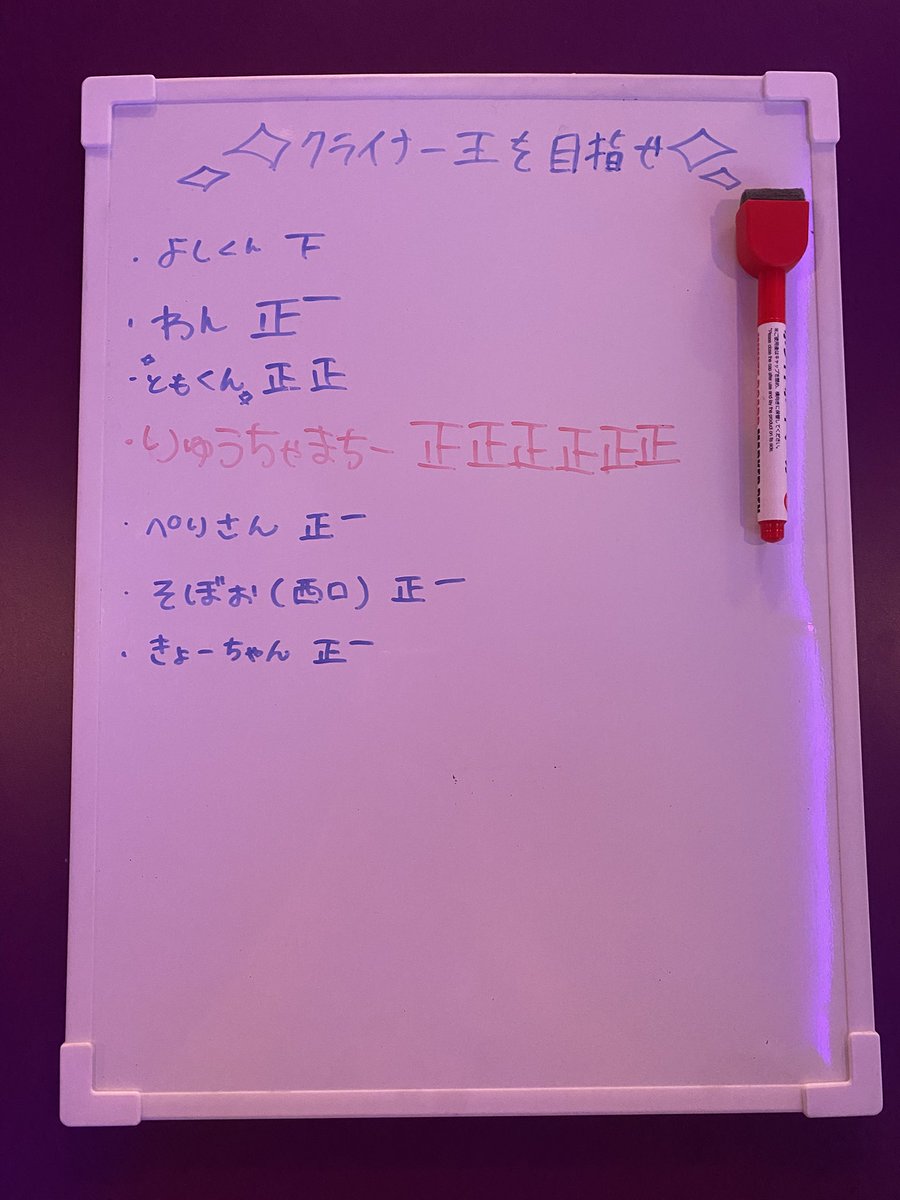 クライナー王を目指せ
・よしくん 下
・わん 正一
・ともくん 正正
・りゅうちゃまちー 正正正正正正
・ぺりさん 正一
・そぼお(西口) 正一
・きょーちゃん 正一